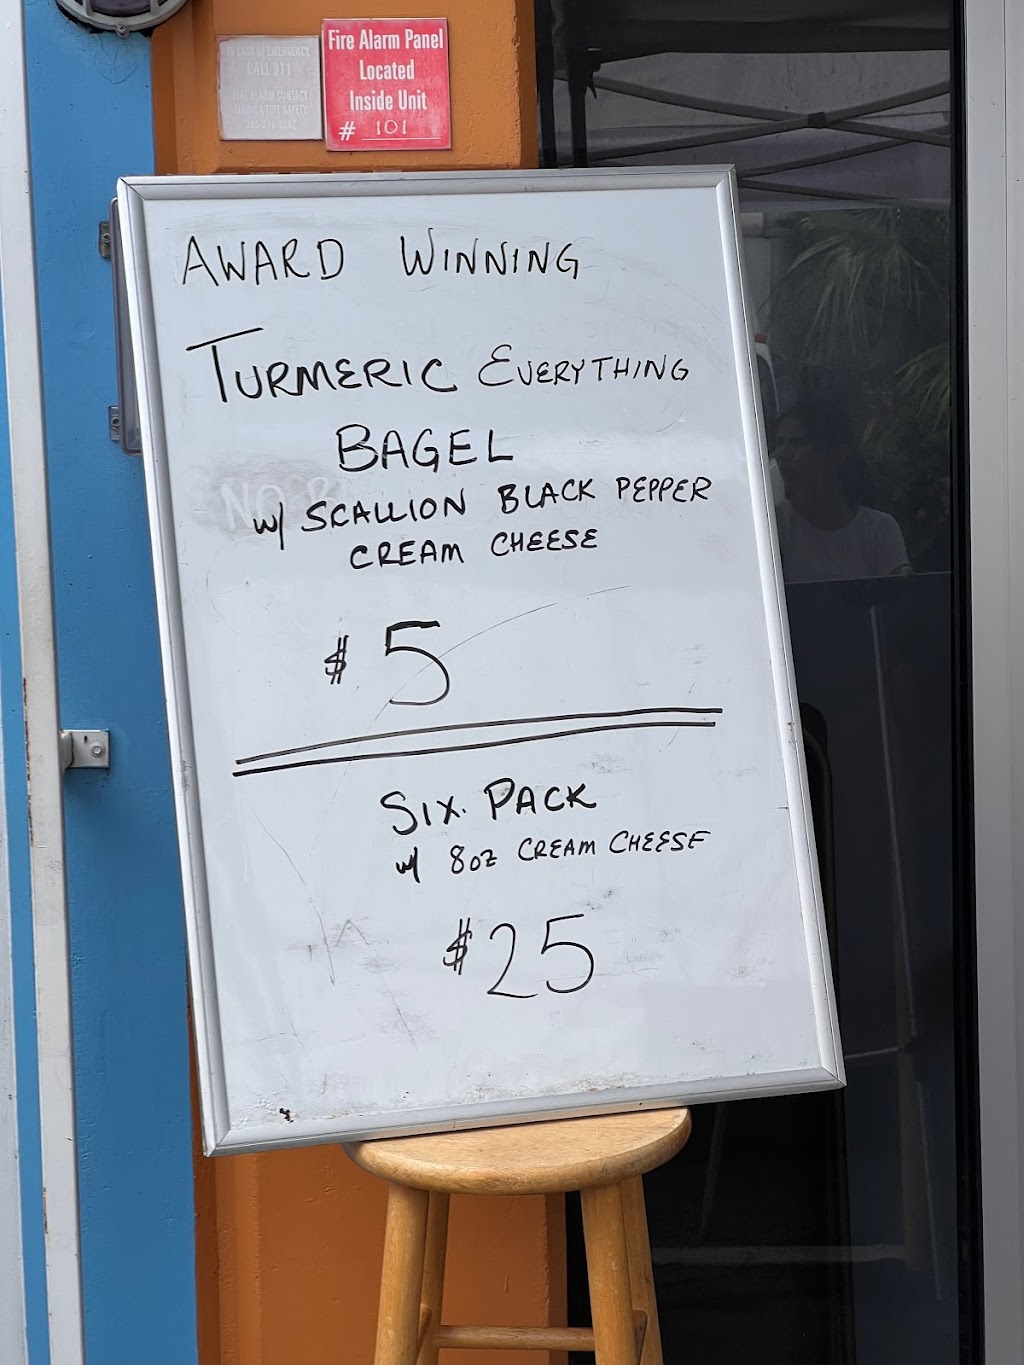 IN CASE OF EMERGENCY
CALL 911
FIRE ALARM CONTACT
Fire Alarm Panel
Located
Inside Unit
# 101
AWARD WINNING
TURMERIC EVERYTHING
BAGEL
w/ SCALLION BLACK PEPPER
CREAM CHEESE
$5
SIX. PACK
w/ 8oz CREAM CHEESE
$25